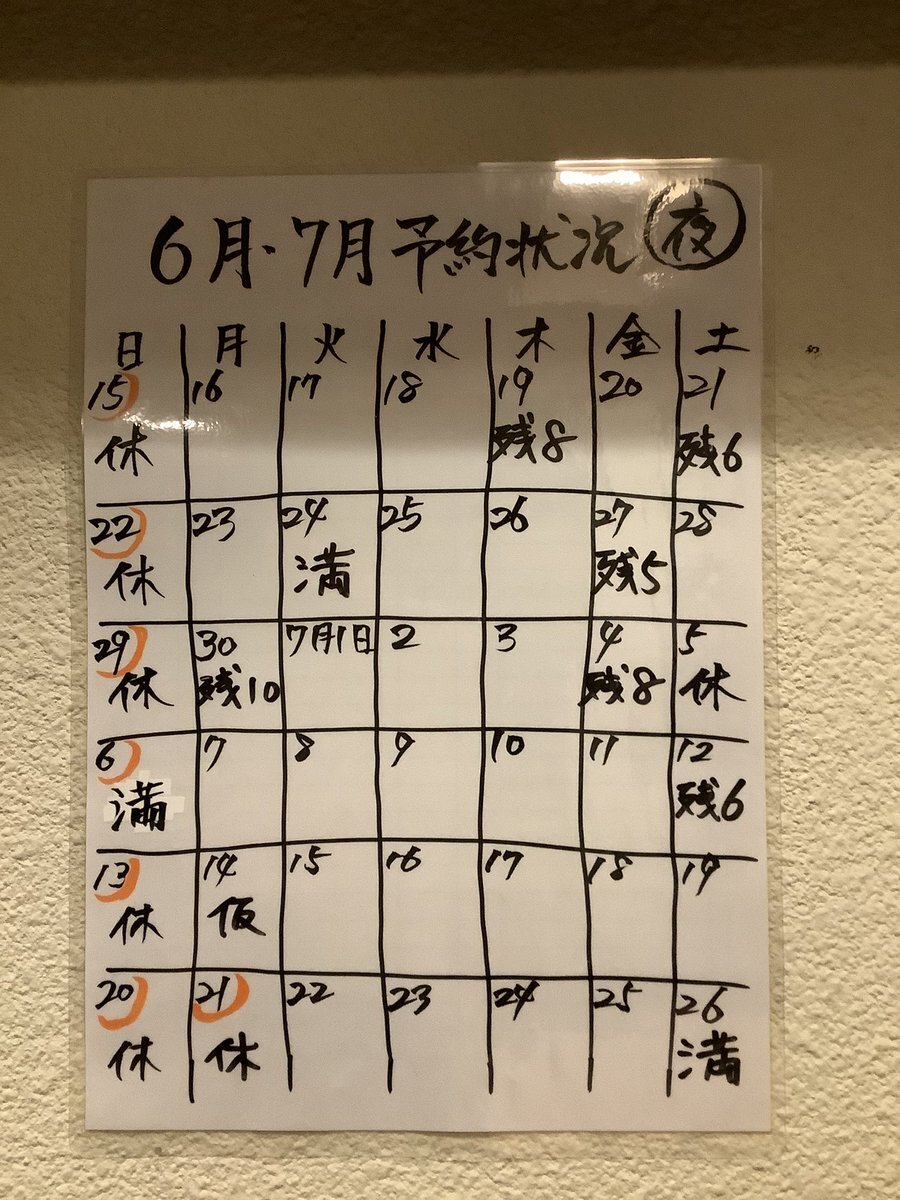 6月・7月予約状況 夜
日 月 火 水 木 金 土
15 16 17 18 19 20 21
休 残8 残6
22 23 24 25 26 27 28
休 満 残5
29 30 7月1日 2 3 4 5
休 残10 残8 休
6 7 8 9 10 11 12
満 残6
13 14 15 16 17 18 19
休 仮
20 21 22 23 24 25 26
休 休 満